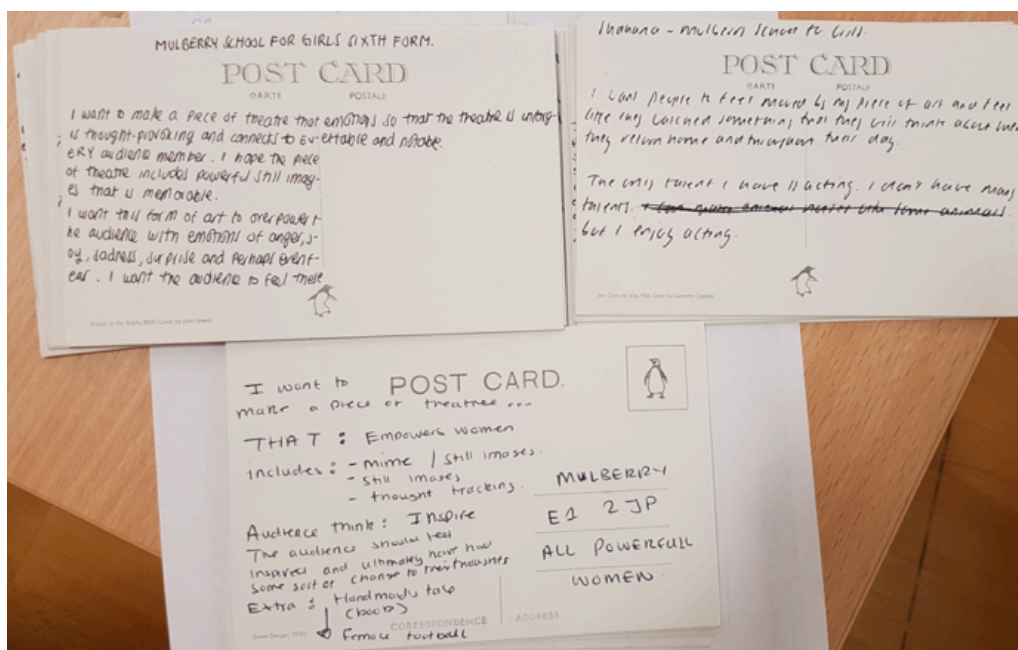 MULBERRY SCHOOL FOR GIRLS SIXTH FORM.
POST CARD
CARTE POSTALE
I want to make a piece of theatre that emotions so that the theatre is unforg-
is thought-provoking and connects to ev-ettable and notable.
ERY audience member. I hope the piece
of theatre includes powerful still imag-
es that is memorable.
I want this form of art to overpower t-
he audience with emotions of anger, j-
oy, sadness, surprise and perhaps even f-
ear. I want the audience to feel these
Shahana - Mulberry School for Girls.
POST CARD
CARTE POSTALE
I want people to feel moved by my piece of art and feel
like they watched something that they will think about when
they return home and throughout their day.
The only talent I have is acting. I don't have many
talents.
but I enjoy acting.
I want to
POST CARD.
make a piece of theatree ...
THAT : Empowers women
includes : - mime / still images.
- still images
- thought tracking.
Audience think : Inspire
The audience should feel
inspired and ultimately have had
some sort of change to their thoughts
Extra : Handmaids tale
(book)
female football
CORRESPONDENCE ADDRESS
MULBERRY
E1 2JP
ALL POWERFULL
WOMEN